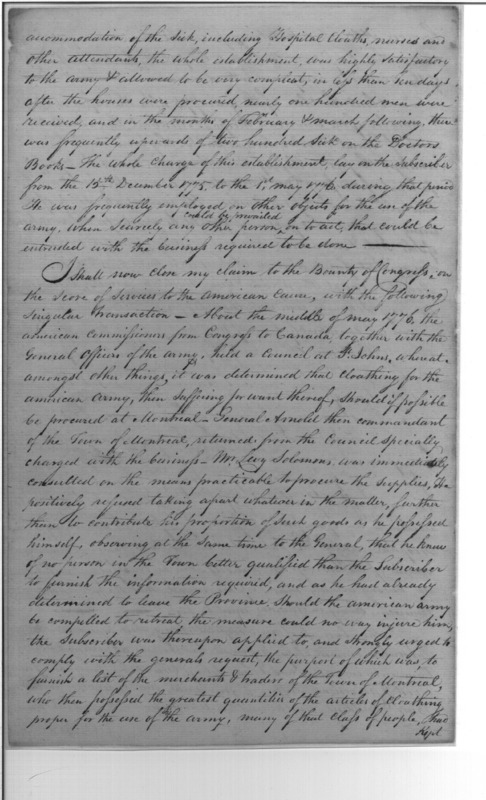 accommodation of the Sick, including Hospital Cloaths, nurses and
other attendants, the whole establishment, was highly satisfactory
to the army & allowed to be very compleat, in less than ten days
after the houses were procured, nearly one hundred men were
received, and in the months of February & march following, there
was frequently upwards of two hundred Sick on the Doctors
Books— The whole Charge of this establishment, lay on the Subscriber
from the 15th December 1775, to the 1st may 1776, during that period
He was frequently employed, on other objects for the use of the
could be prevailed
army, when Scarcely any other person, on to act, that could be
entrusted with the business required to be done —
I Shall now close my claim to the Bounty of Congress, on
the Score of Services to the American Cause, with the following
Singular Transaction — About the middle of may 1776, the
american Commissioners from Congress to Canada, together with the
General officers of the army, held a Council at St Johns, whereat,
amongst other things, it was determined that Cloathing for the
american army, then Suffering for want thereof, Should if possible
be procured at Montreal — General Arnold then commandant
of the Town of Montreal, returned from the Council specially
charged with the business — Mr Levy Solomons was immediately
consulted on the means practicable to procure the Supplies, He
positively refused taking a part whatever in the matter, further
than to contribute his proportion of Such goods as he possessed
himself, observing at the Same time to the General, that he knew
of no person in the Town better qualified than the Subscriber
to furnish the information required, and as he had already
determined to leave the Province, Should the american army
be compelled to retreat, the measure could no way injure him,
the Subscriber was thereupon applied to, and Strongly urged to
comply with the generals request, the purport of which was, to
furnish a list of the merchants & traders of the Town of Montreal,
who then possessed the greatest quantities of the articles of Cloathing
proper for the use of the army, many of that Class of people, had
Kept